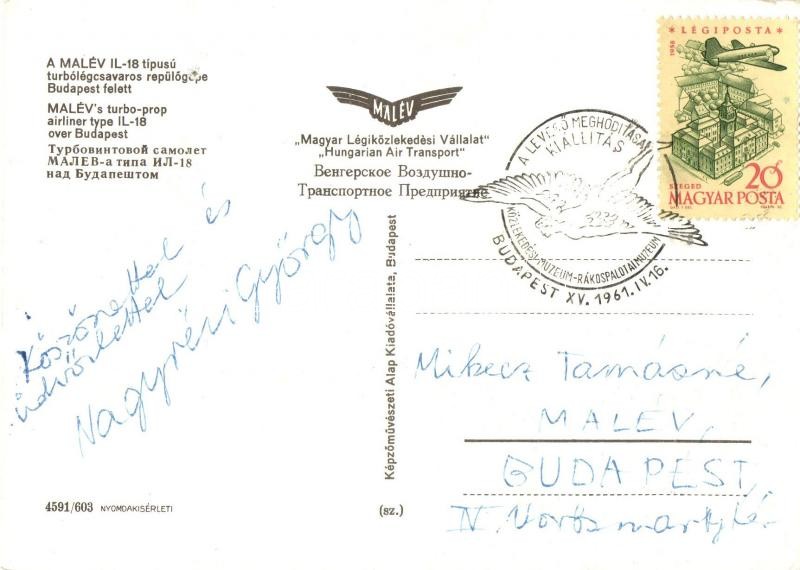 A MALÉV IL-18 típusú
turbólégcsavaros repülőgépe
Budapest felett
MALÉV's turbo-prop
airliner type IL-18
over Budapest
Турбовинтовой самолет
МАЛЕВ-а типа ИЛ-18
над Будапештом
MALÉV
„Magyar Légiközlekedèsi Vállalat"
„Hungarian Air Transport"
Венгерское Воздушно-
Транспортное Предприятие
A LEVEGŐ MEGHÓDÍTÁSA
KIÁLLÍTÁS
KÖZLEKEDÉSI MÚZEUM-RÁKOSPALOTAI MÚZEUM
BUDAPEST XV. 1961.IV.16.
LÉGIPOSTA
1958
SZEGED
20
MAGYAR POSTA
Köszönettel és
üdvözlettel
Nagyrévi György
Képzőművészeti Alap Kiadóvállalata, Budapest
Mikecz Tamásné,
MALÉV,
BUDAPEST,
V. Vörösmarty tér
4591/603 NYOMDAKISÉRLETI
(sz.)